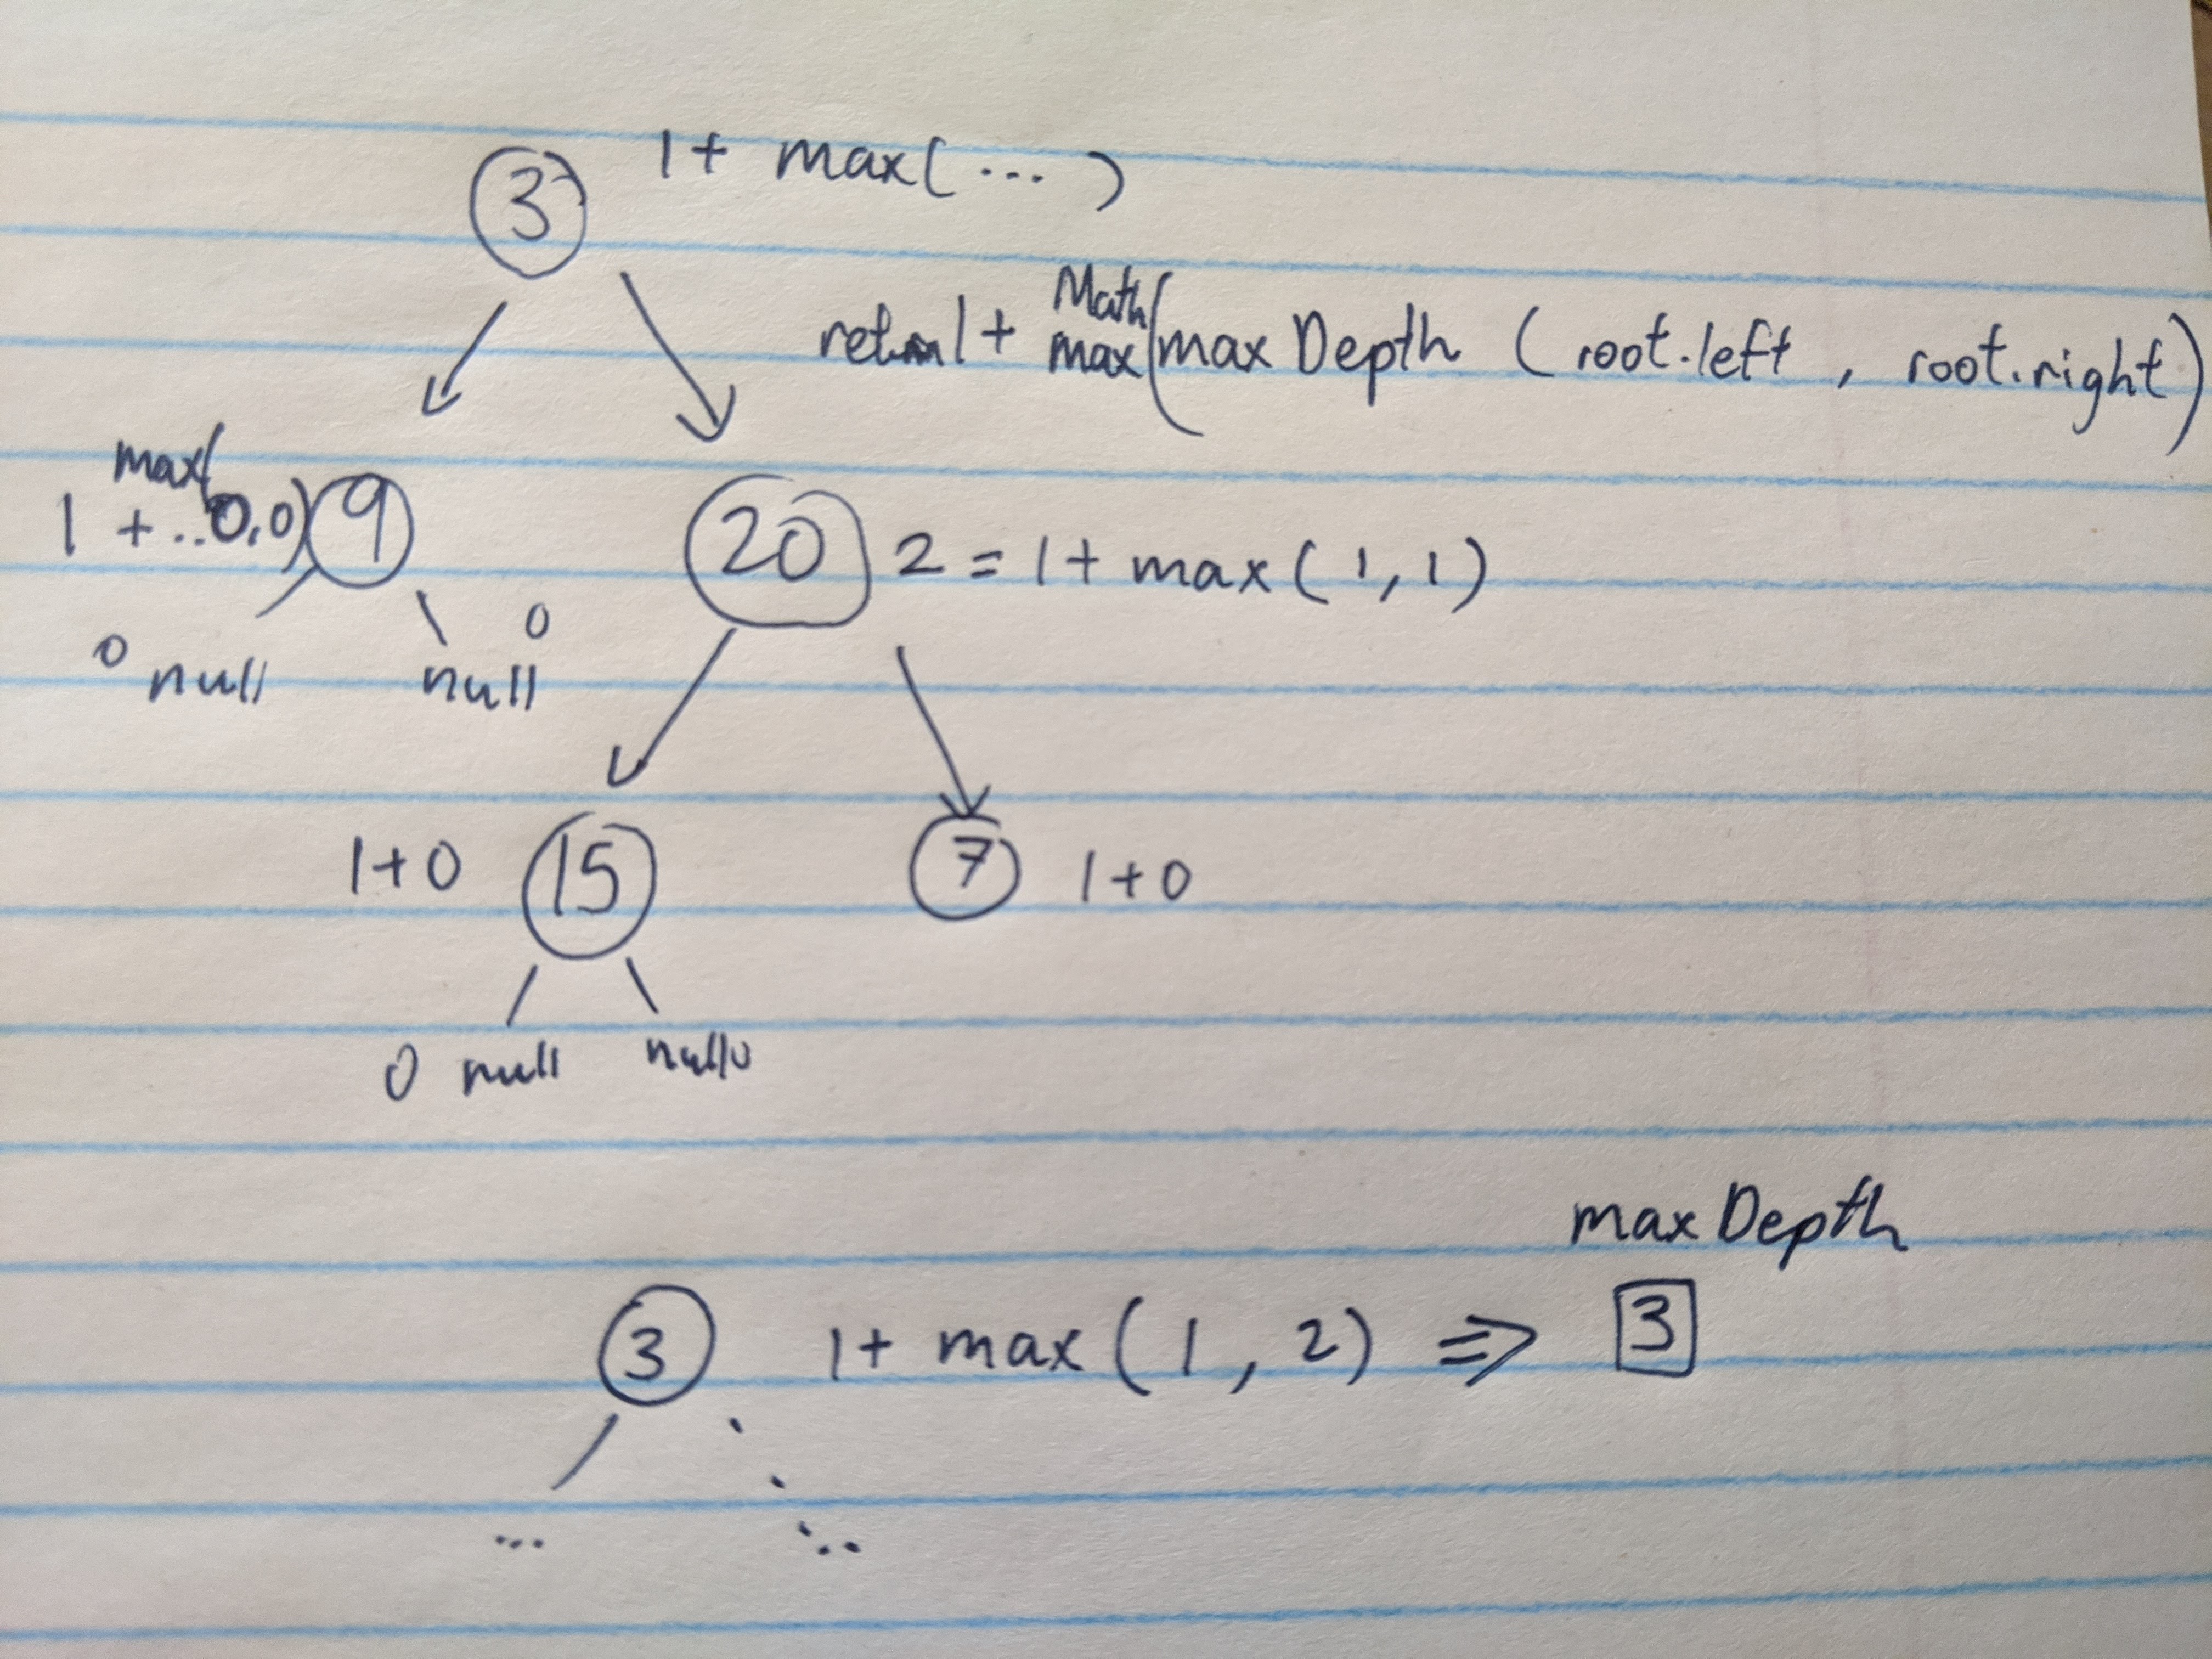 3 1 + max( ... )
return 1 + Math max(maxDepth ( root.left , root.right)
1 + max( ..0,0) 9 20 2 = 1 + max ( 1, 1 )
0 null null 0
1+0 15 7 1+0
0 null null 0
maxDepth
3 1+ max ( 1 , 2 ) => 3
... ...